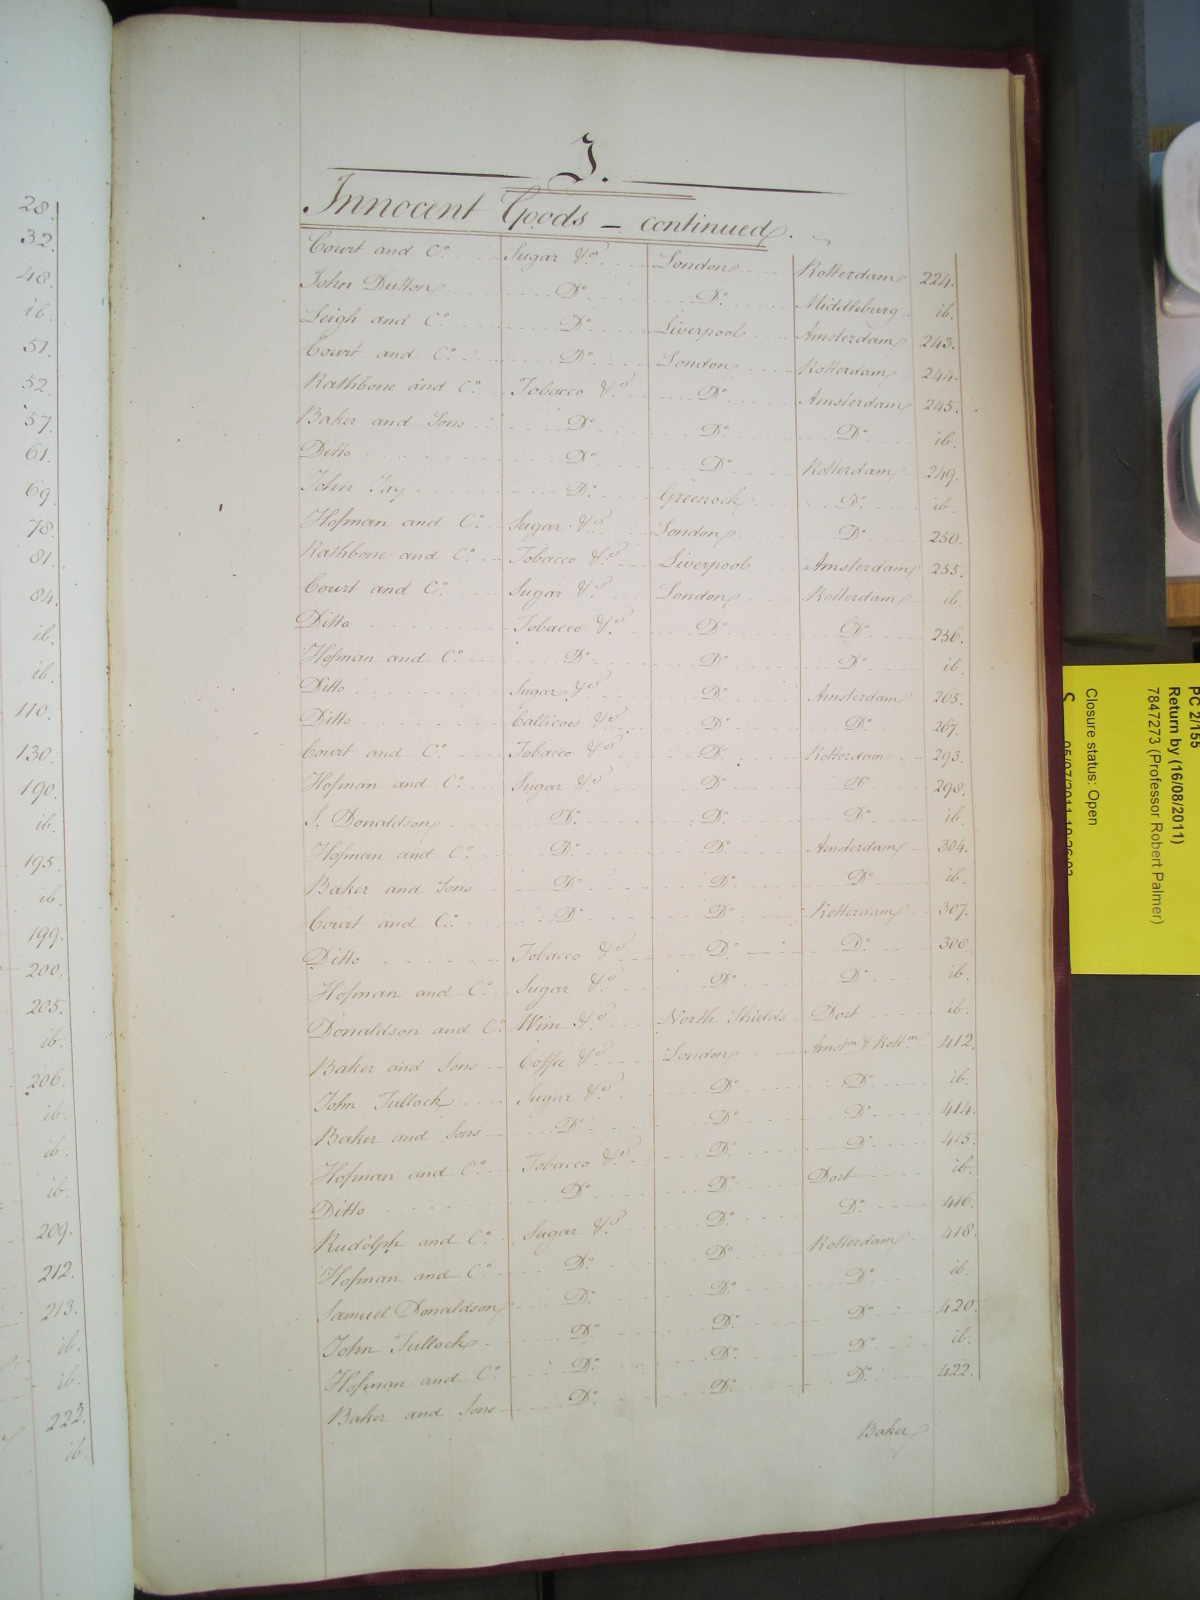 28.
32.
48.
ib.
51.
52.
57.
61.
69.
78.
81.
84.
ib.
ib.
110.
130.
190.
ib.
195.
ib.
199.
200.
205.
ib.
206.
ib.
ib.
ib.
209.
212.
213.
ib.
ib.
222.
ib.
I.
Innocent Goods – continued.
Court and Co. Sugar &c. London Rotterdam 224.
John Dutton Do. Do. Middleburg ib.
Leigh and Co. Do. Liverpool Amsterdam 243.
Court and Co. Do. London Rotterdam 244.
Rathbone and Co. Tobacco &c. Do. Amsterdam 245.
Baker and Sons Do. Do. Do. ib.
Ditto Do. Do. Rotterdam 249.
John Jay Do. Greenock Do. ib.
Hofman and Co. Sugar &c. London Do. 250.
Rathbone and Co. Tobacco &c. Liverpool Amsterdam 255.
Court and Co. Sugar &c. London Rotterdam ib.
Ditto Tobacco &c. Do. Do. 256.
Hofman and Co. Do. Do. Do. ib.
Ditto Sugar &c. Do. Amsterdam 265.
Ditto Callicoes &c. Do. Do. 267.
Court and Co. Tobacco &c. Do. Rotterdam 293.
Hofman and Co. Sugar &c. Do. Do. 298.
S. Donaldson Do. Do. Do. ib.
Hofman and Co. Do. Do. Amsterdam 304.
Baker and Sons Do. Do. Do. ib.
Court and Co. Do. Do. Rotterdam 307.
Ditto Tobacco &c. Do. Do. 308
Hofman and Co. Sugar &c. Do. Do. ib.
Donaldson and Co. Wine &c. North Shields Dort ib.
Baker and Sons Coffee &c. London Amstm. & Rottm. 412.
John Tullock Sugar &c. Do. Do. ib.
Baker and Sons Do. Do. Do. 414.
Hofman and Co. Tobacco &c. Do. Do. 415.
Ditto Do. Do. Dort ib.
Rudolph and Co. Sugar &c. Do. Do. 416.
Hofman and Co. Do. Do. Rotterdam 418.
Samuel Donaldson Do. Do. Do. ib.
John Tullock Do. Do. Do. 420.
Hofman and Co. Do. Do. Do. ib.
Baker and Sons Do. Do. Do. 422.
Baker
PC 2/155
Return by (16/08/2011)
7847273 (Professor Robert Palmer)
Closure status: Open